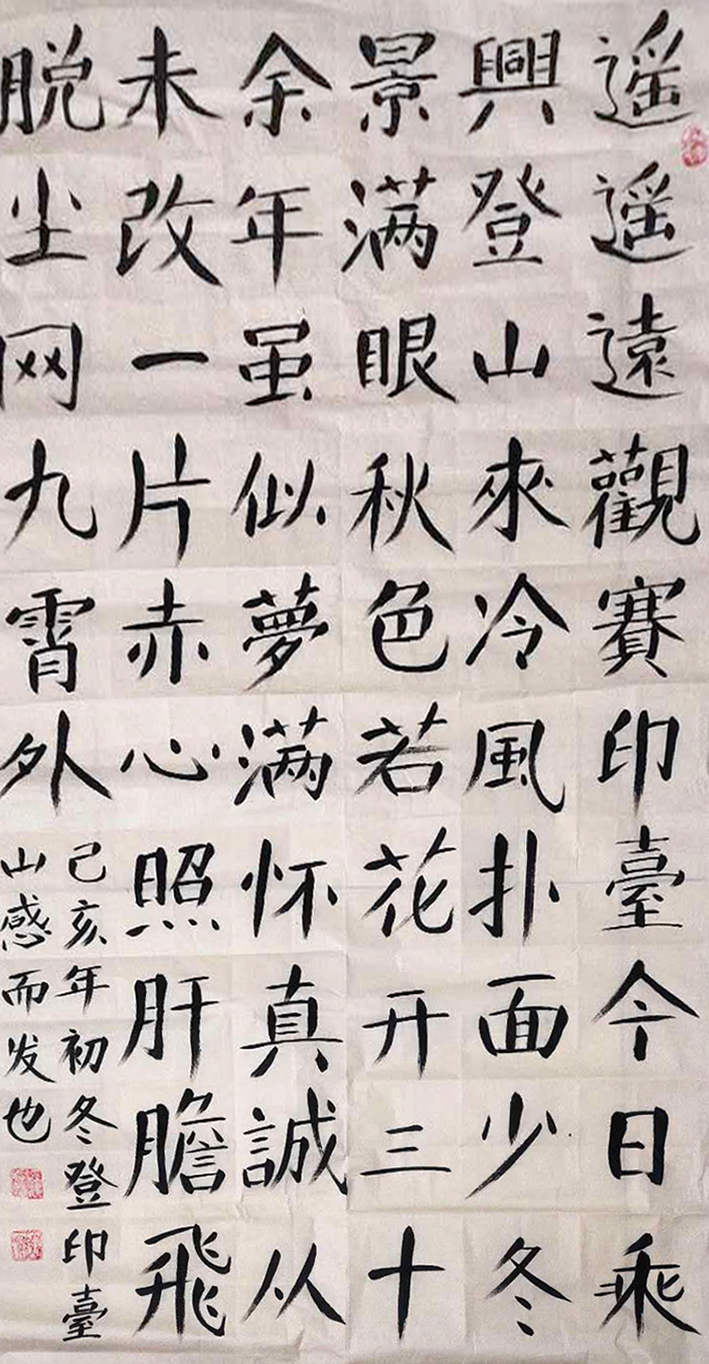 遥遥遠觀賽印臺今日乘
興登山來冷風扑面少冬
景满眼秋色若花开三十
余年虽似夢满怀真誠从
未改一片赤心照肝膽飛
脱尘网九霄外
己亥年初冬登印臺
山感而发也